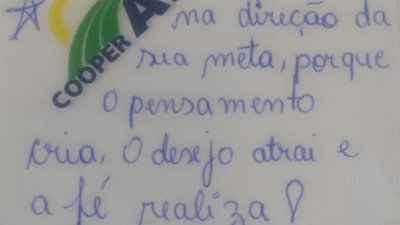 COOPER A
na direção da
sua meta, porque
o pensamento
cria, O desejo atrai e
a fé realiza!